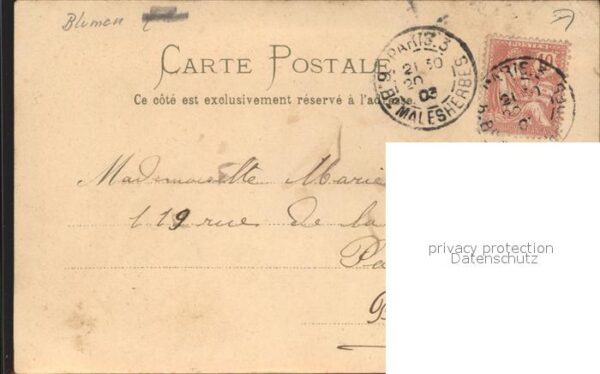 Blumen
CARTE POSTALE
Ce côté est exclusivement réservé à l'adresse.
PARIS 3
21 30
20
03
5, Bd MALESHERBES
POSTES
10
PARIS 3
Mademoiselle Marie
119 rue de la
Pa
privacy protection
Datenschutz